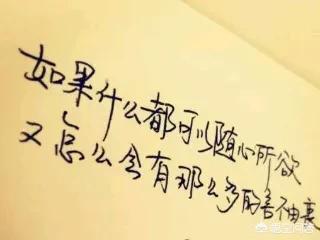 如果什么都可以随心所欲
又怎么会有那么多的言不由衷
悟空问答